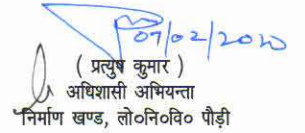 07/02/2020
( प्रत्युष कुमार )
अधिशासी अभियन्ता
निर्माण खण्ड, लो०नि०वि० पौड़ी